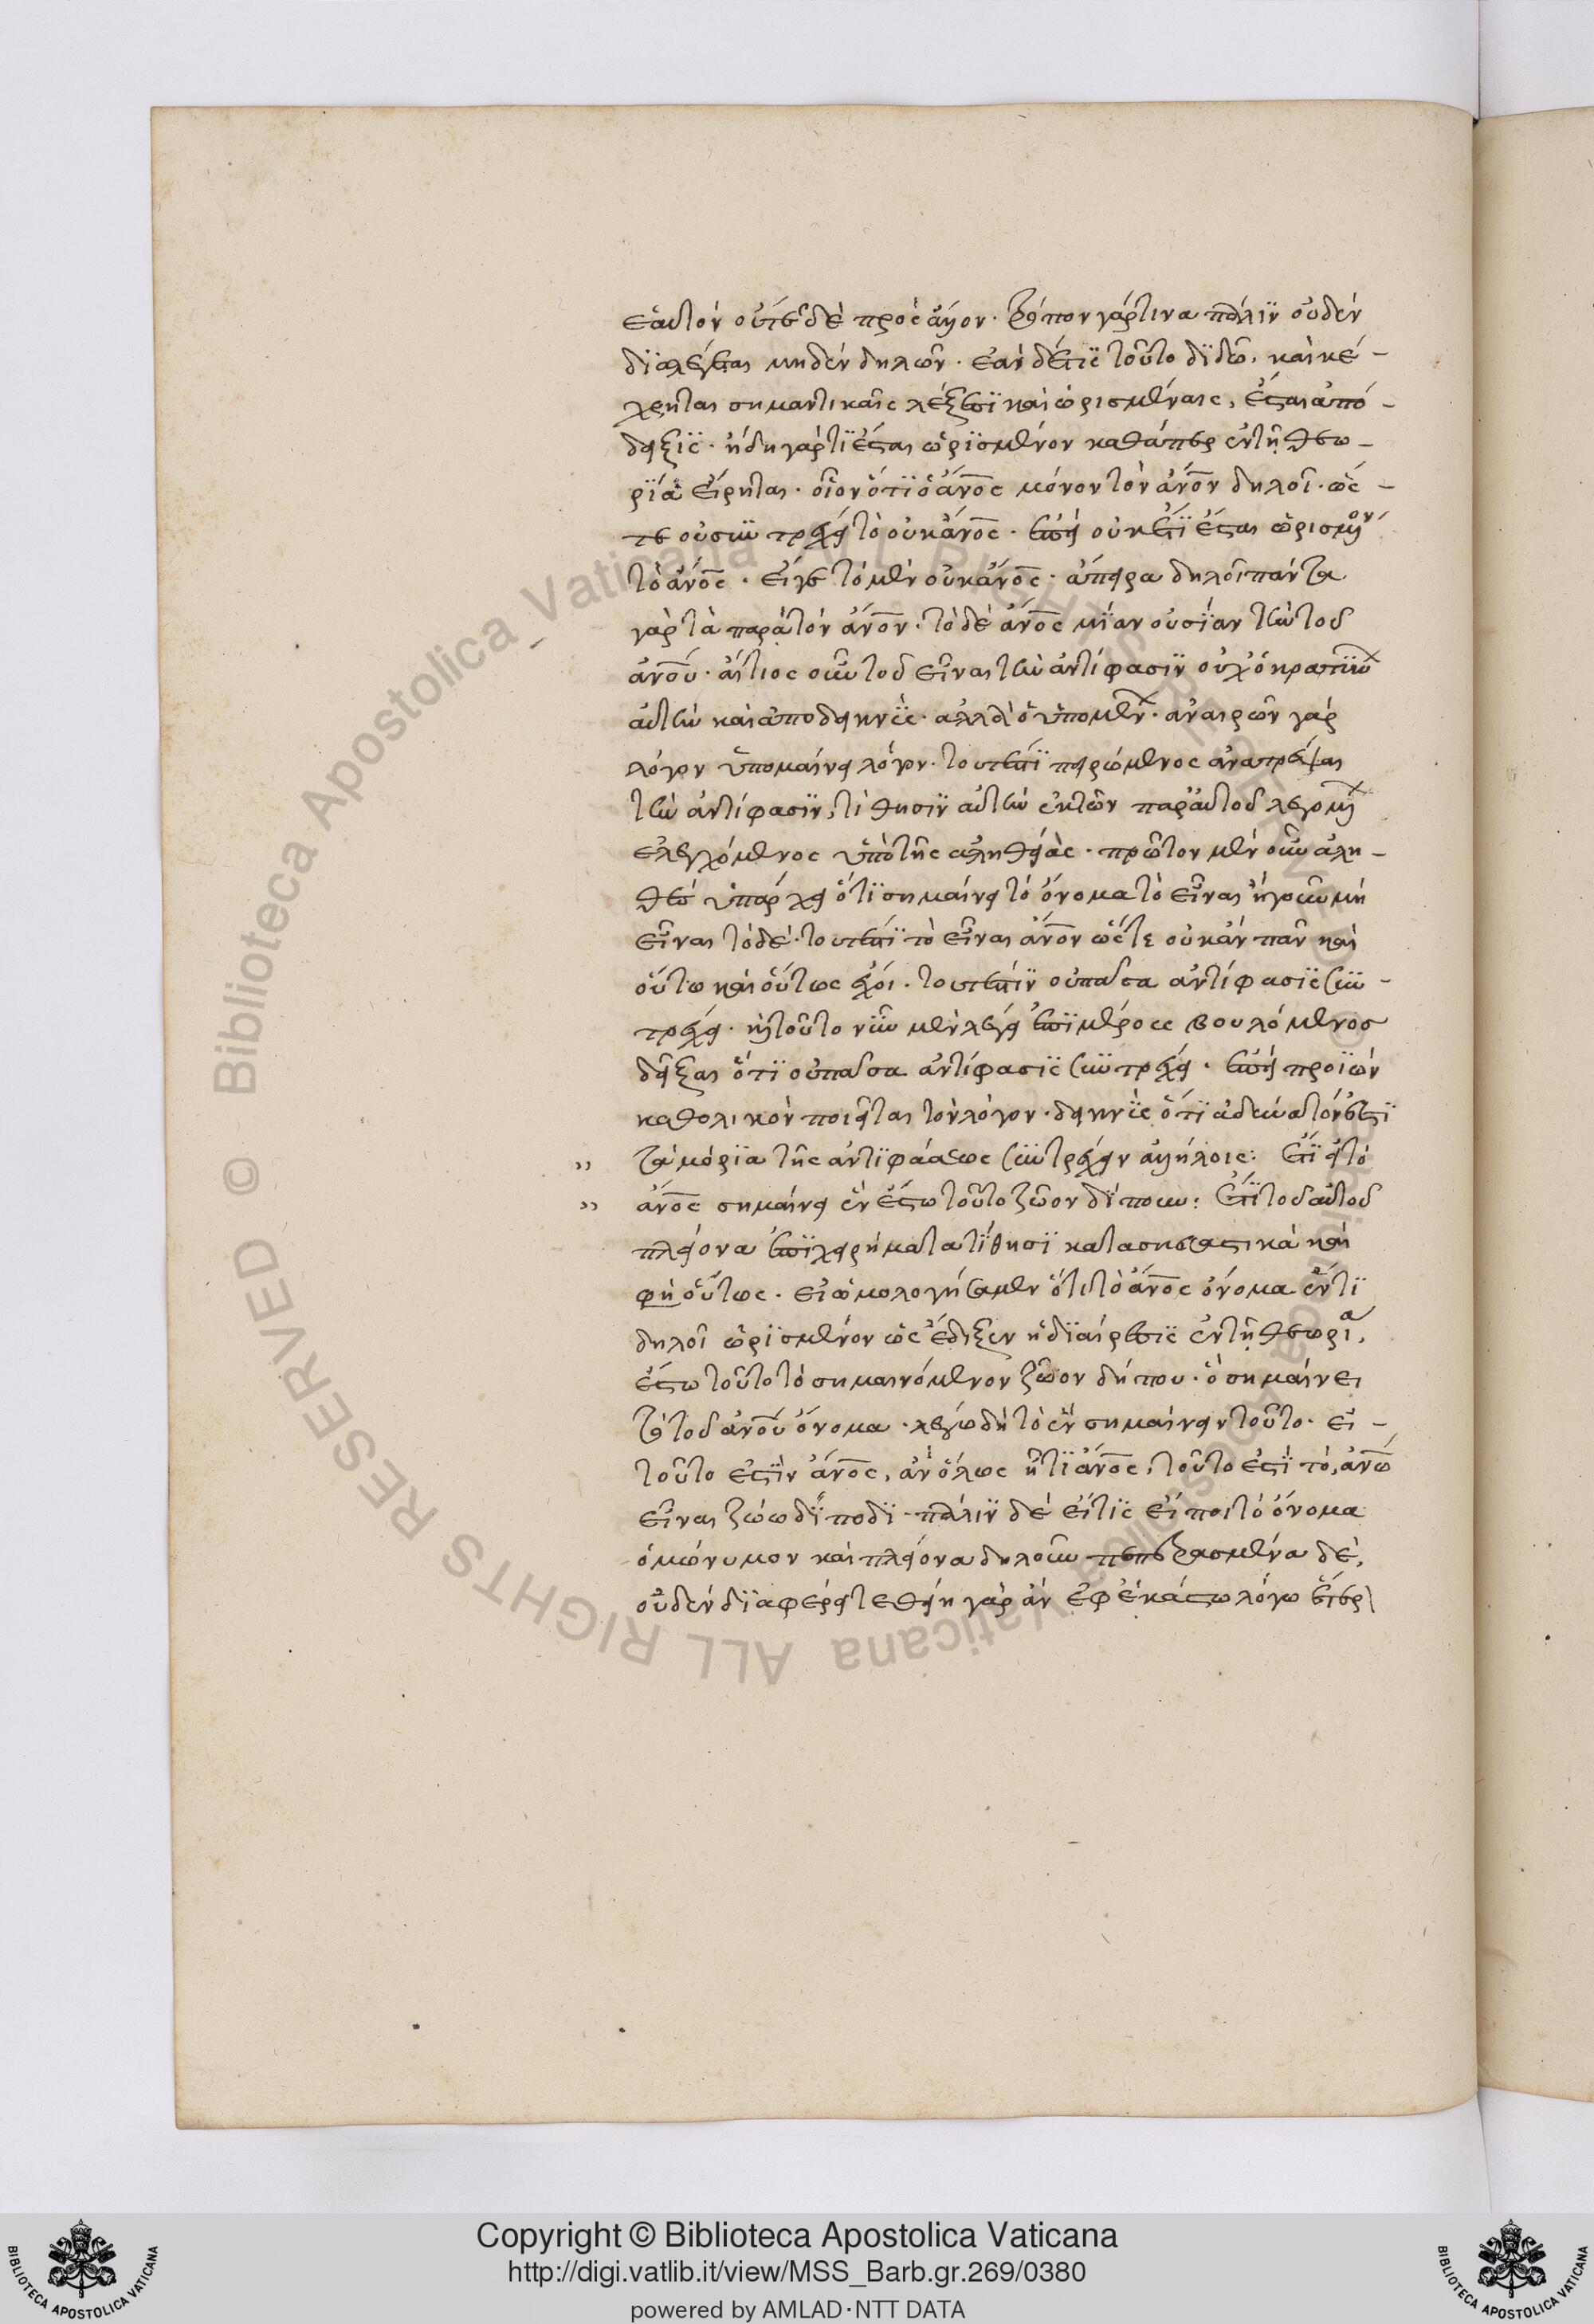 ἑαυτὸν οὔτε δὲ πρὸς ἄλλον. τρόπον γάρ τινα πάλιν οὐδὲν
διαλέγεται μηδὲν δηλῶν. ἐὰν δέ τις τοῦτο διδῶ. καὶ κέ-
χρηται σημαντικαῖς λέξεσι καὶ ὡρισμέναις, ἔσται ἀπό-
δειξις. ἤδη γάρ τι ἔσται ὡρισμένον καθάπερ ἐν τῇ θεω-
ρία εἴρηται. οἷον ὅτι ὁ ἄνος μόνον τὸν ἄνον δηλοῖ. ὥσ-
τε οὐ συντρέχει τὸ οὐκ ἄνος. ἐπεὶ οὐκέτι ἔσται ὡρισμένον
τὸ ἄνος. εἴγε τὸ μὲν οὐκ ἄνος. ἄπειρα δηλοῖ πάντα
γὰρ τὰ παρὰ τὸν ἄνον. τὸ δὲ ἄνος μίαν οὐσίαν τὴν τοῦ
ἀνου. αἴτιος οὖν τοῦ εἶναι τὴν ἀντίφασιν οὐχ ὁ κρατύνων
αὐτὴν καὶ ἀποδεικνὺς. ἀλλ' ὁ ὑπομένων. ἀναιρῶν γὰρ
λόγον ὑπομαίνει λόγον. τουτέστι πειρώμενος ἀνατρέψαι
τὴν ἀντίφασιν, τίθησιν αὐτὴν ἐκ τῶν παρ' αὐτοῦ λεγομένων
ἐλεγχόμενος ὑπὸ τῆς ἀληθείας. πρῶτον μὲν οὖν ἀλη-
θὲς ὑπάρχει ὅτι σημαίνει τὸ ὄνομα τὸ εἶναι ἤγουν μὴ
εἶναι τὸ δέ. τουτέστι τὸ εἶναι ἄνον ὥστε οὐκ ἂν πᾶν καὶ
οὕτω καὶ οὕτως ἔχοι. τουτέστιν οὐ πᾶσα ἀντίφασις συν-
τρέχει. καὶ τοῦτο νῦν μὲν λέγει ἐπὶ μέρους βουλόμενος
δεῖξαι ὅτι οὐ πᾶσα ἀντίφασις συντρέχει. ἐπεὶ προϊὼν
καθολικὸν ποιεῖται τὸν λόγον. δεικνὺς ὅτι ἀδύνατόν ἐστι
τὰ μόρια τῆς ἀντιφάσεως συντρέχειν ἀλλήλοις: Ἔτι εἰ τὸ
ἄνος σημαίνει ἓν ἔστω τοῦτο ζῶον δίπουν: Ἔτι τοῦ αὐτοῦ
πλείονα ἐπιχειρήματα τίθησι κατασκευαστικὰ καὶ
φη οὕτως. εἰ ὡμολογήσαμεν ὅτι τὸ ἄνος ὄνομα ἕν τι
δηλοῖ ὡρισμένον ὡς ἔδειξεν ἡ διαίρεσις ἐν τῇ θεωρία,
ἔστω τοῦτο τὸ σημαινόμενον ζῶον δήπου. ὃ σημαίνει
τὸ τοῦ ἀνου ὄνομα. λέγω δὴ τὸ ἓν σημαίνειν τοῦτο. εἰ-
τοῦτο ἐστὶν ἄνος, ἂν ὅλως ᾖ τι ἄνος, τοῦτο ἐστὶ τὸ, ἀνω
εἶναι ζώω δίποδι. πάλιν δὲ εἴ τις εἴποι τὸ ὄνομα
ὁμώνυμον καὶ πλείονα δηλοῦν πεπερασμένα δὲ,
οὐδὲν διαφέρει τεθείη γὰρ ἂν ἐφ' ἑκάστω λόγω ἕτερ
Copyright © Biblioteca Apostolica Vaticana
http://digi.vatlib.it/view/MSS_Barb.gr.269/0380
powered by AMLAD·NTT DATA